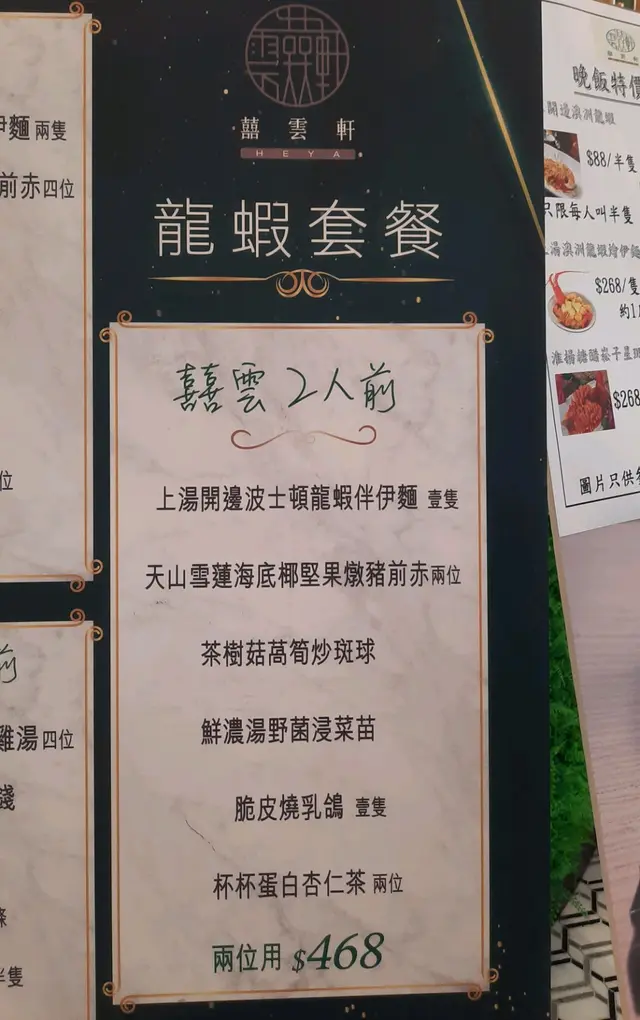 囍雲軒
HEYA
龍蝦套餐
囍雲 2人前
上湯開邊波士頓龍蝦伴伊麵 壹隻
天山雪蓮海底椰堅果燉豬前赤兩位
茶樹菇萵筍炒斑球
鮮濃湯野菌浸菜苗
脆皮燒乳鴿 壹隻
杯杯蛋白杏仁茶 兩位
兩位用 $468
伊麵 兩隻
前赤四位
位
前
雞湯 四位
隻
晚飯特價
開邊澳洲龍蝦
$88/半隻
只限每人叫半隻
上湯澳洲龍蝦燴伊麵
$268/隻
約1
淮揚糖醋崧子星斑
$268
圖片只供參